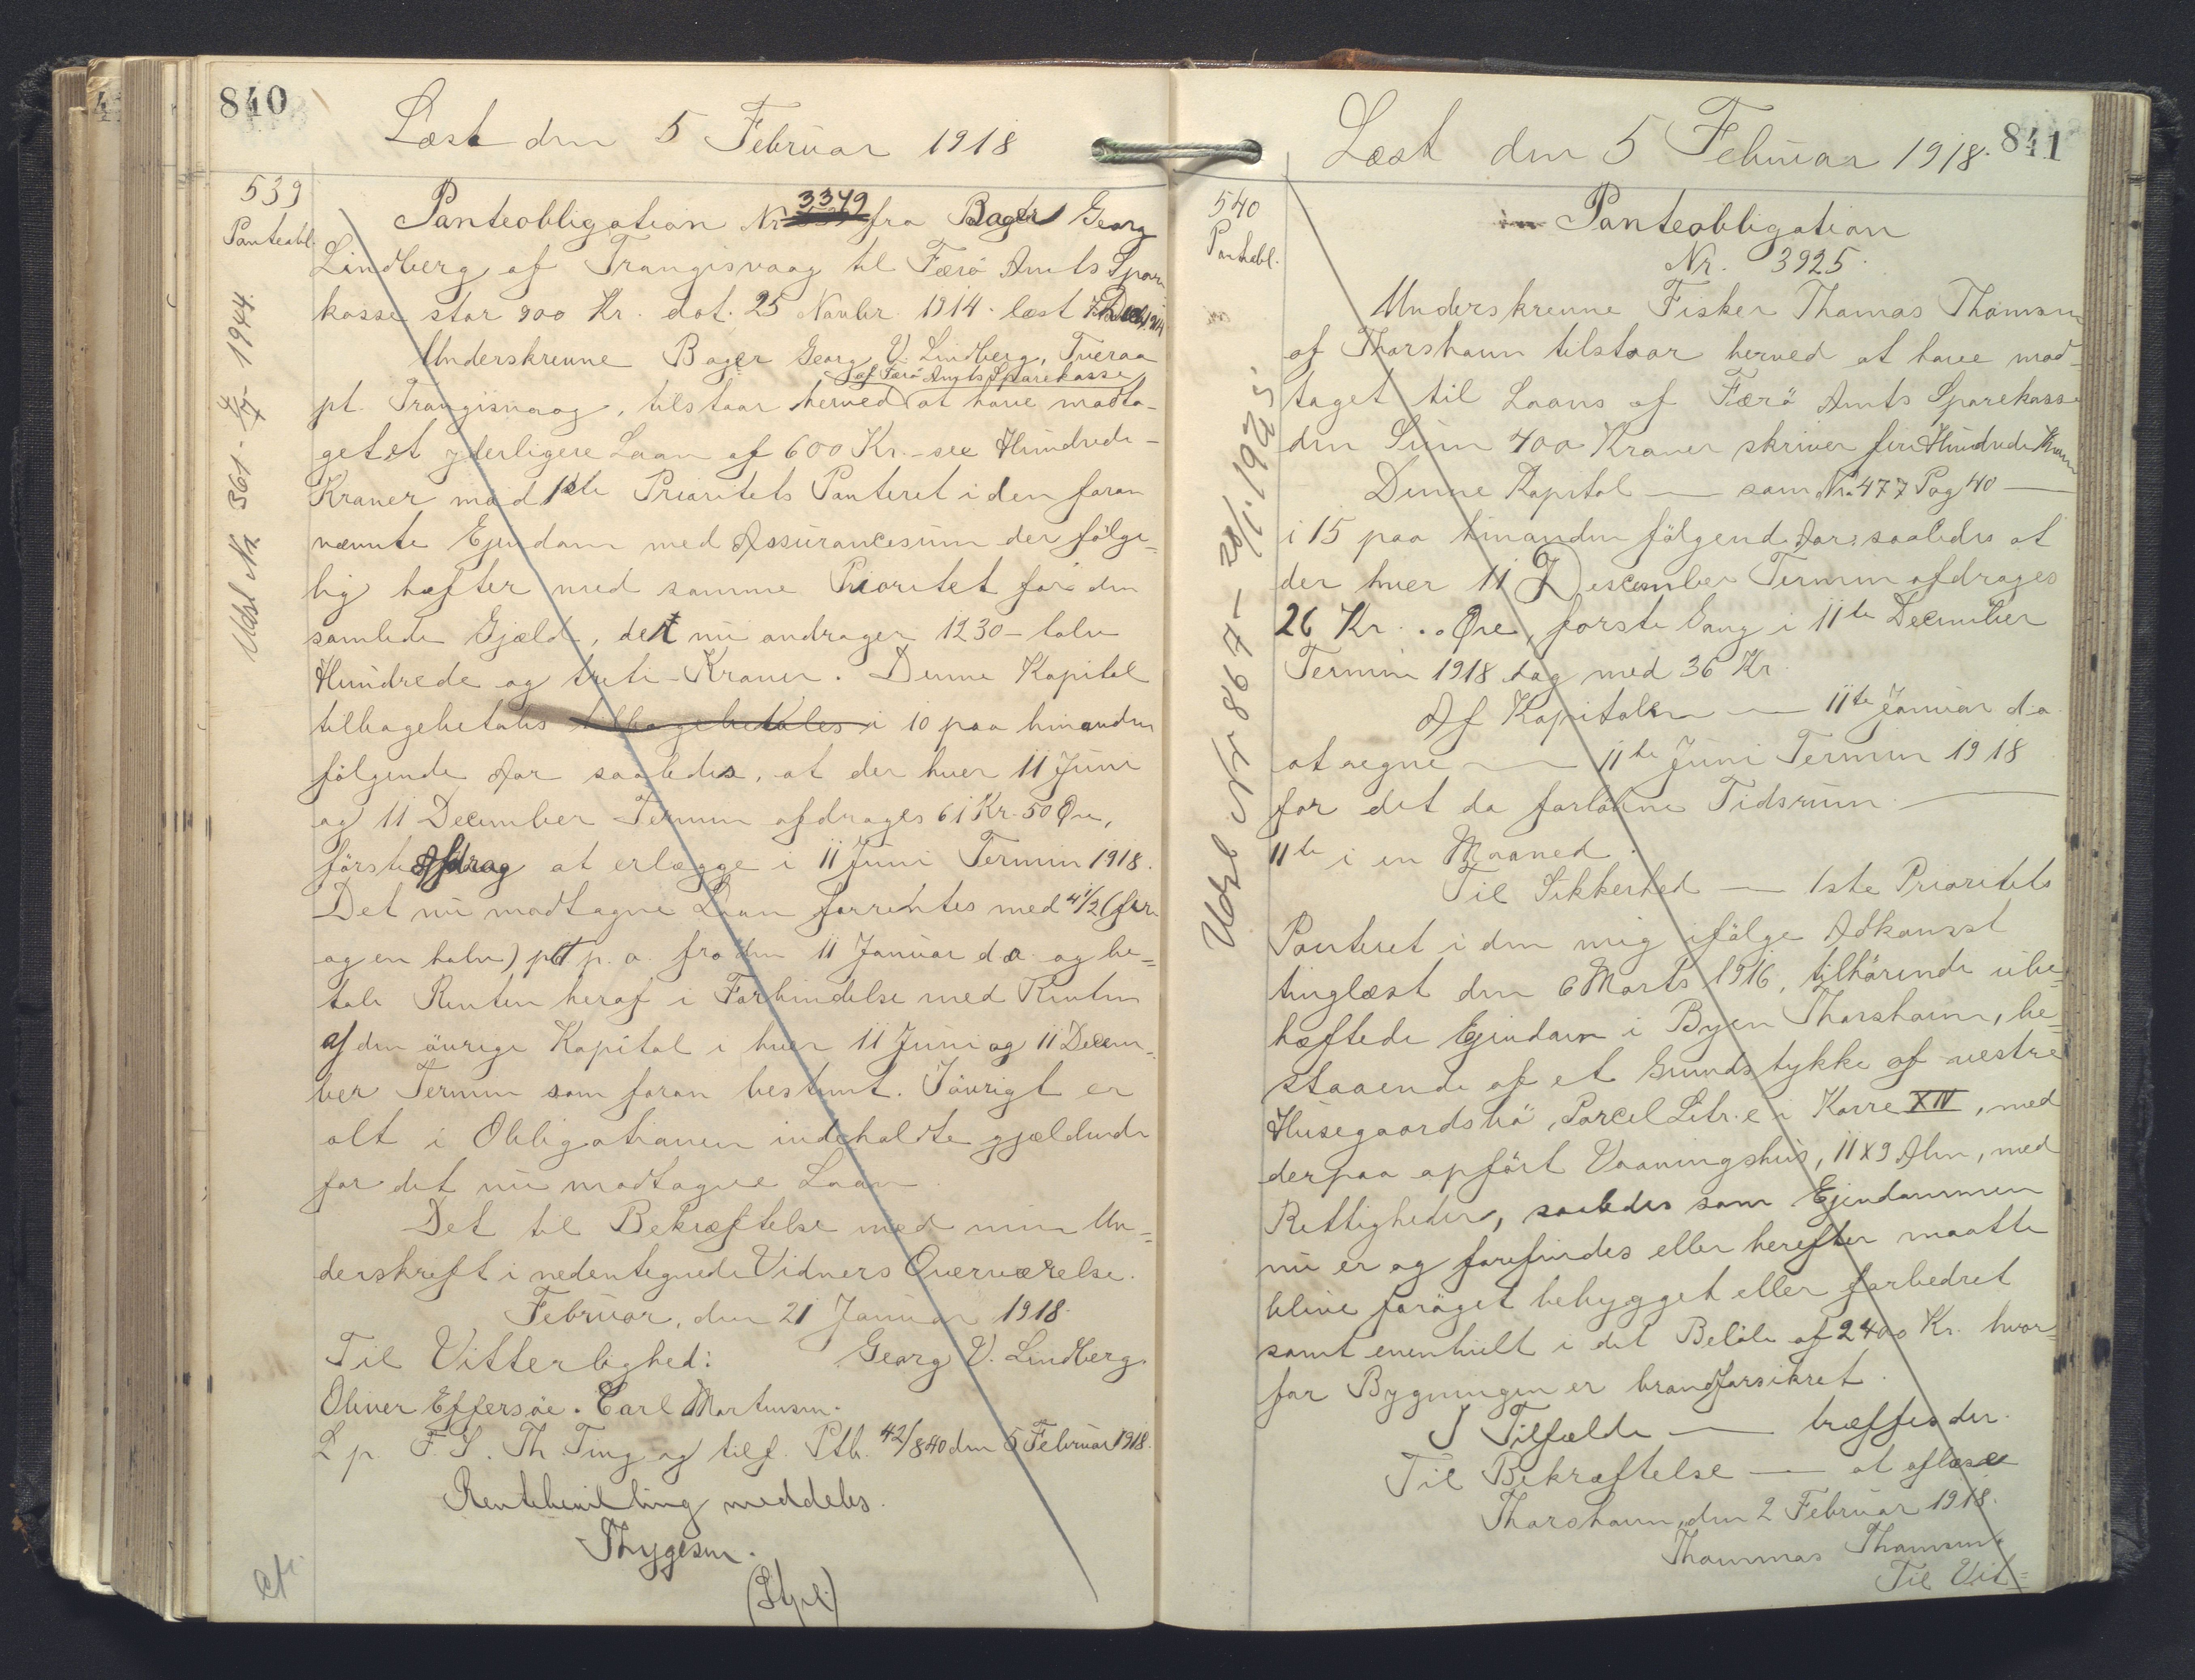 840
Læst den 5 Februar 1918
539
Panteobl.
Udsl Nr 361 - 4/7 - 1944.
Panteobligation Nr 3349 fra Bager Georg
Lindberg af Trangisvaag til Færö Amts Spare
kasse stor 900 Kr. dat. 25 Novbr. 1914. læst
Underskrevne Bager Georg V. Lindberg, Tveraa
af Færö Amts Sparekasse
pt. Trangisvaag, tilstaar herved at have modta-
get et yderligere Laan af 600 Kr. - sex Hundrede -
Kroner mod 1ste Prioritets Panteret i den foran
nævnte Ejendom med Assurancesum der fölge=
lig hæfter med samme Prioritet for den
samlede Gjæld, det nu andrager 1230 - tolv
Hundrede og treti - Kroner. Denne Kapital
tilbagebetales tilbagebetales i 10 paa hinanden
fölgende Aar saaledes, at der hver 11 Juni
og 11 December Termin afdrages 61 Kr. 50 Öre,
förste Afdrag at erlægge i 11 Juni Termin 1918.
Det nu modtagne Laan forrentes med 4 1/2 (fire
og en halv) pCt p. a. fra den 11 Januar d.a. og be=
tale Renten heraf i Forbindelse med Renten
af den övrige Kapital i hver 11 Juni og 11 Decem=
ber Termin som foran bestemt. Iövrigt er
alt i Obligationen indeholdte gjældende
for det nu modtagne Laan.
Det til Bekræftelse med min Un=
derskrift i nedentegnede Vidners Overværelse.
Februar, den 21 Januar 1918.
Til Vitterlighed: Georg V. Lindberg.
Oliver Effersöe. Carl Mortensen.
L p. F. S. Th. Ting og tilf. Ptb. 42/840 den 5 Februar 1918.
Rentebevilling meddeles.
Thygesen.
841
Læst den 5 Februar 1918.
540
Panteobl.
Udsl Nr 867 - 28/1. 1925
Panteobligation
Nr. 3925.
Underskrevne Fisker Thomas Thomsen
af Thorshavn tilstaar herved at have mod=
taget til Laans af Færö Amts Sparekasse
den Sum 400 Kroner skriver fire Hundrede Kroner
Denne Kapital — som Nr. 477 Pag 40 —
i 15 paa hinanden fölgende Aar, saaledes at
der hver 11 December Termin afdrages
26 Kr. .. Öre, forste Gang i 11te December
Termin 1918 dog med 36 Kr.
Af Kapitalen — 11te Januar d.a
at regne — 11te Juni Termin 1918
for det da forlöbne Tidsrum —
11te i en Maaned.
Til Sikkerhed — 1ste Prioritets
Panteret i den mig ifölge Adkomst
tinglæst den 6 Marts 1916, tilhörende ube=
hæftede Ejendom i Byen Thorshavn, be=
staaende af et Grundstykke af vestre
Husegaardsbö, Parcel Litr. e i Karre XIV, med
derpaa opfört Vaaningshus, 11 x 9 Alen, med
Rettigheder, saaledes som Ejendommen
nu er og forefindes eller herefter maatte
blive foröget bebygget eller forbedret
samt eventuelt i det Belöb af 2400 Kr. hvor=
for Bygningen er brandforsikret.
I Tilfælde — træffes der.
Til Bekræftelse — at aflæse
Thorshavn, den 2 Februar 1918.
Thommas Thomsen.
Til Vit=